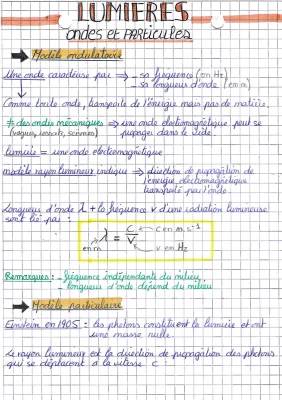 LUMIERES
ondes et PARTICULES
→ Modèle ondulatoire
Une onde caractérisée par ⇒ – sa fréquence (en Hz)
– sa longueur d'onde (en m)
↓
Comme toute onde, transporte de l'énergie mais pas de matière.
≠ des ondes mécaniques ⇒ une onde électromagnétique peut se
(vagues, ressorts, séismes) propager dans le vide.
Lumière = une onde électromagnétique
modèle rayon lumineux indique ⇒ direction de propagation de
l'énergie électromagnétique
transporté par l'onde
Longueur d'onde λ + la fréquence ν d'une radiation lumineuse
sont lié par :
λ = c/ν
c en m.s⁻¹
en m
ν en Hz
Remarques : – fréquence indépendante du milieu
– longueur d'onde dépend du milieu
→ Modèle particulaire
Einstein en 1905 : les photons constituent la lumière et ont
une masse nulle.
Le rayon lumineux est la direction de propagation des photons
qui se déplacent à la vitesse c :